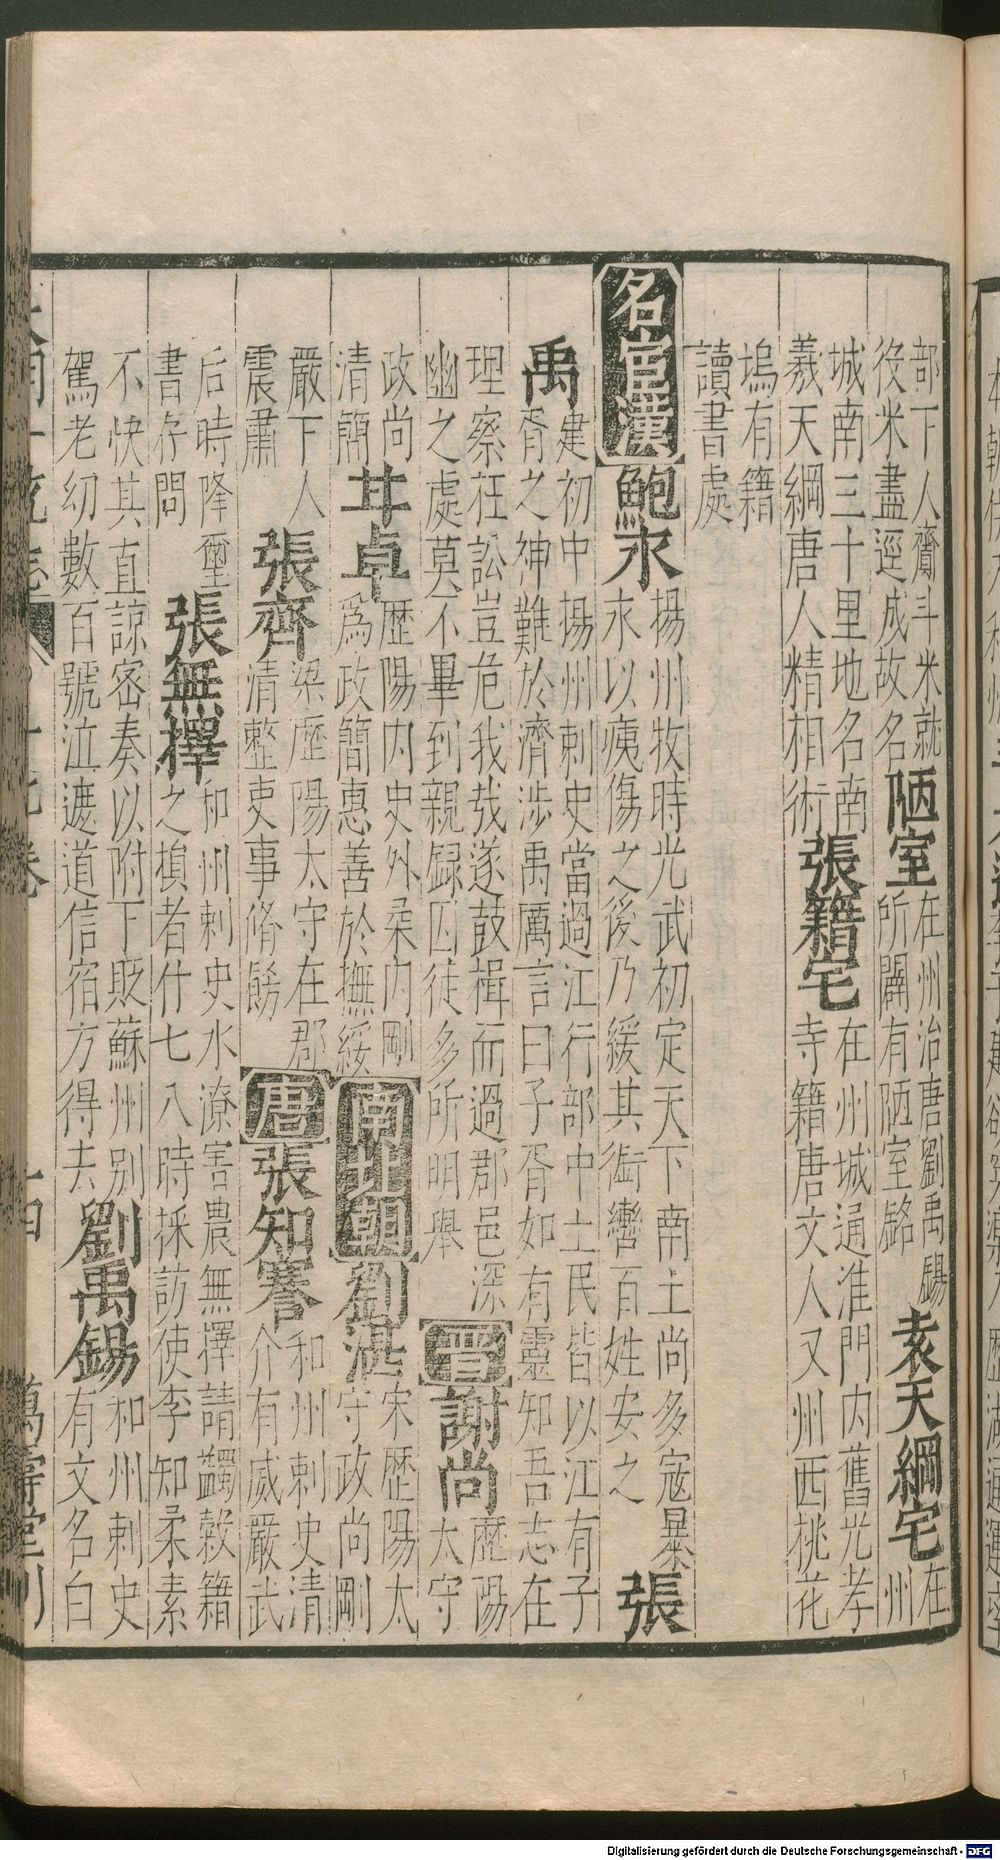 部下人齎斗米就
役米盡逕成故名
陋室
在州治唐劉禹錫
所闢有陋室銘
袁天綱宅
在
州
城南三十里地名南
義天綱唐人精相術
張籍宅
在州城通淮門内舊光孝
寺籍唐文人又州西桃花
塢有籍
讀書處
名宦漢鮑永
揚州牧時光武初定天下南土尚多寇暴
永以痍傷之後乃緩其銜轡百姓安之
張
禹
建初中揚州刺史當過江行部中土民皆以江有子
胥之神難於濟涉禹厲言曰子胥如有靈知吾志在
理察枉訟豈危我哉遂鼓楫而過郡邑深
幽之處莫不畢到親録囚徒多所明舉
晉謝尚
歷陽
太守
政尚
清簡
甘卓
歷陽内史外柔内剛
為政簡惠善於撫綏
南北朝劉湛
宋歷陽太
守政尚剛
嚴下人
震肅
張齊
梁歷陽太守在郡
清整吏事脩餙
唐張知謇
和州刺史清
介有威嚴武
后時降璽
書存問
張無擇
和州刺史水潦害農無擇請蠲榖籍
之損者什七八時採訪使李知柔素
不快其直諒密奏以附下貶蘇州别
駕老幼數百號泣遮道信宿方得去
劉禹錫
和州刺史
有文名白
大明一統志 十七卷 十四 萬壽堂刊
Digitalisierung gefördert durch die Deutsche Forschungsgemeinschaft - DFG